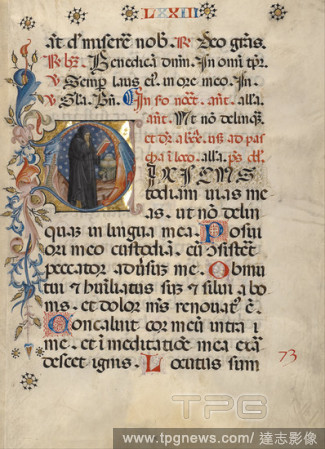 LXXIII
āt d̄ miserē nob. R Deo grās.
R br̄. Benedicā dnm̄. In omī tp̄r.
V Semp̄ laus eī. in ore meo. In.
V Glīa. In prīo noct̄. ant̄. alla.
ant̄. Ut nō delinq̄
alla. ps. d.
DIXI CUS
todiam uias me
as. ut nō delin
quaz in lingua mea. Posui
ori meo custodiā. cū ↄsistet̄
peccator adūsuz me. Obmu
tui & hūiliatus suz & silui a bo
nis. et dolor m̄s renouat' ē.
Concaluit cor meū intra i
me. et i meditatiōe mea exā
descet ignis. Locutus sum
73
TPG
www.tpgnews.com/達志影像